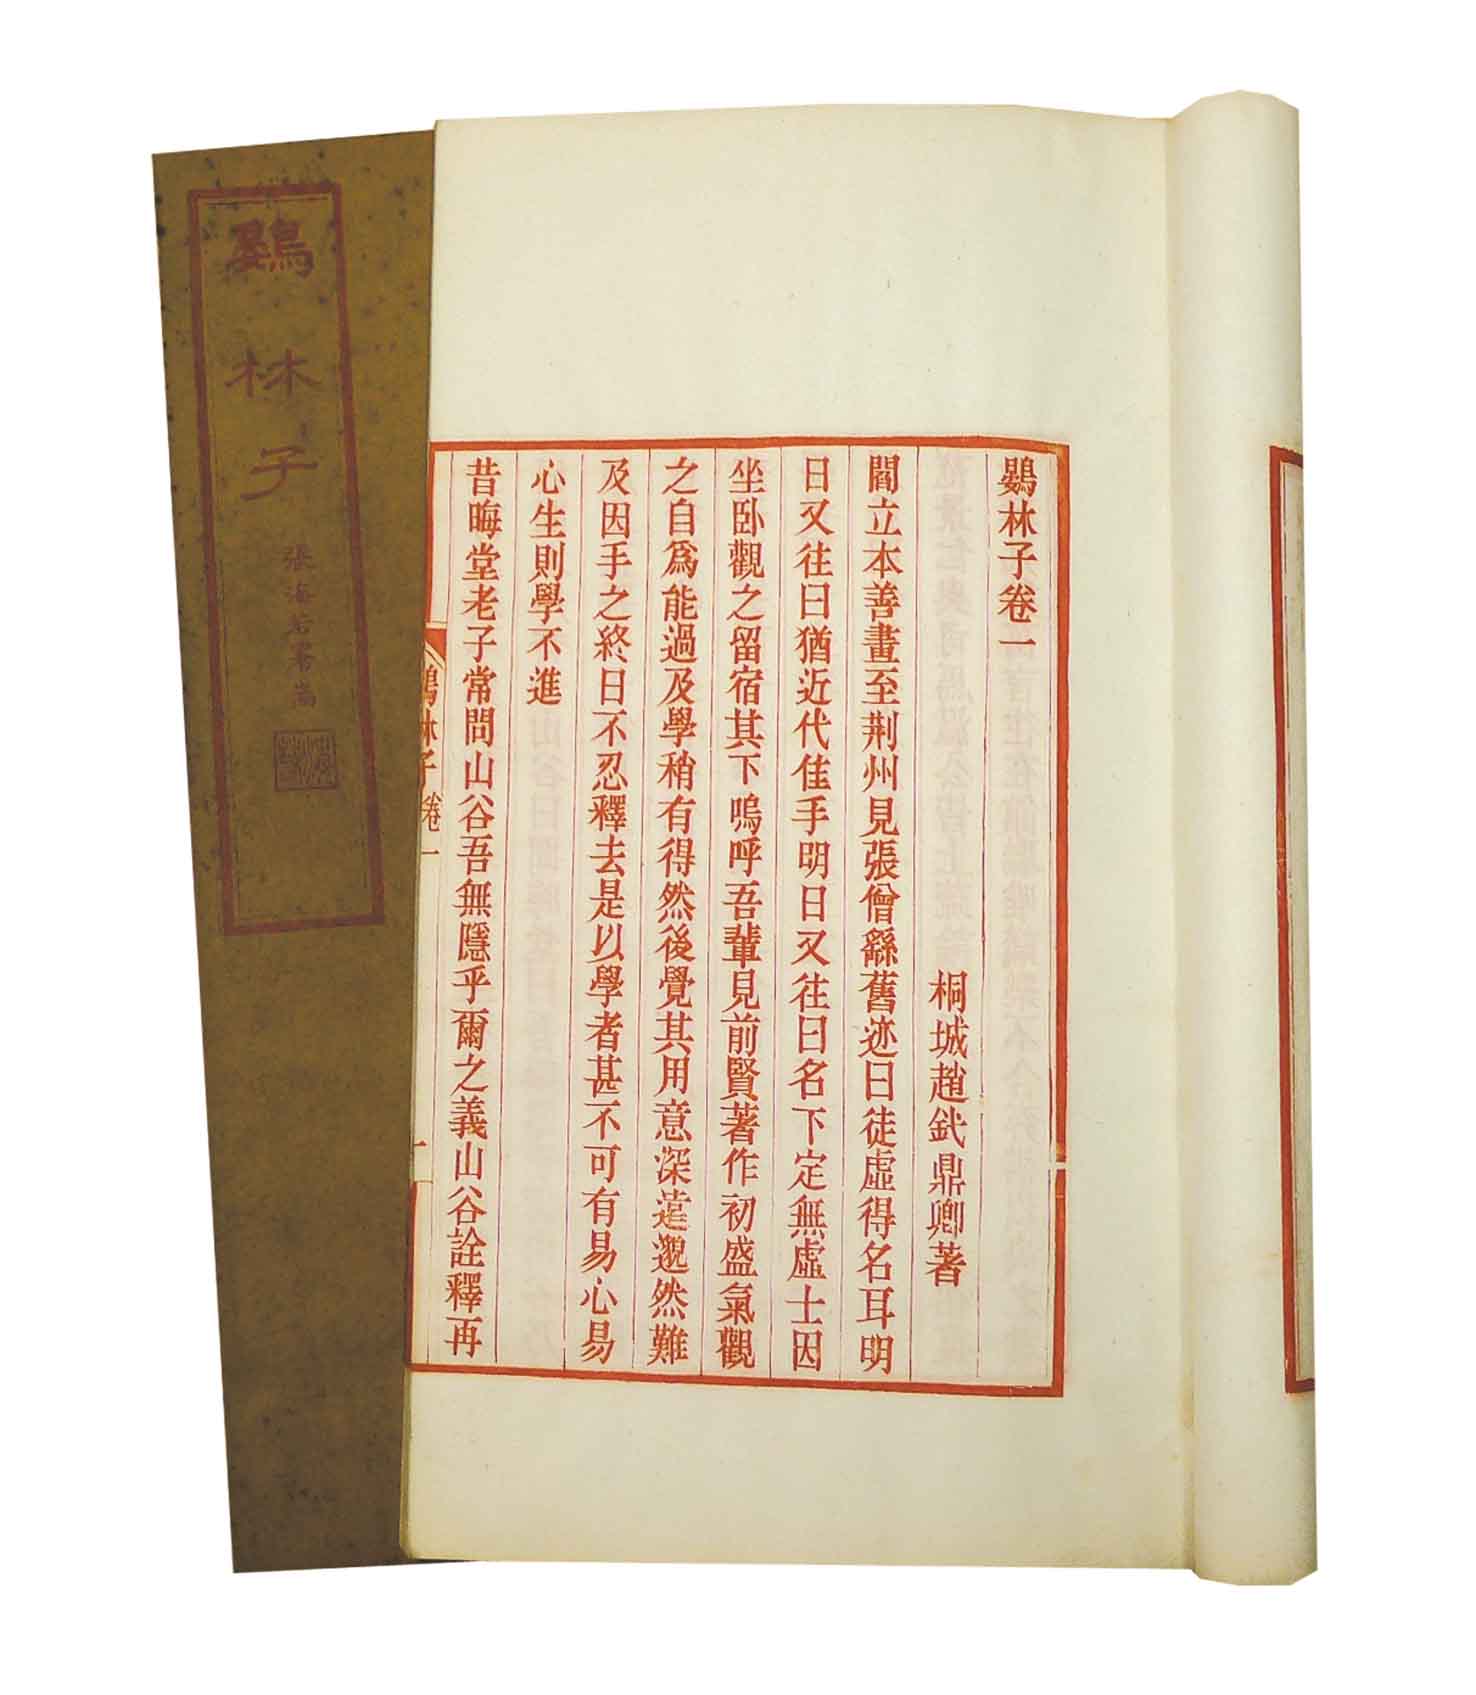 鷃林子卷一
桐城趙釴鼎卿著
閻立本善畫至荆州見張僧繇舊迹曰徒虛得名耳明
日又往曰猶近代佳手明日又往曰名下定無虛士因
坐卧觀之留宿其下嗚呼吾輩見前賢著作初盛氣觀
之自爲能過及學稍有得然後覺其用意深遠邈然難
及因手之終日不忍釋去是以學者甚不可有易心易
心生則學不進
昔晦堂老子常問山谷吾無隱乎爾之義山谷詮釋再
鷃林子 卷一
一
鷃林子
張海若署耑